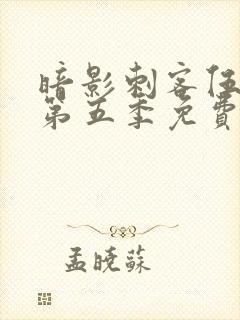 暗影刺客伍
第五季免費
孟曉蘇